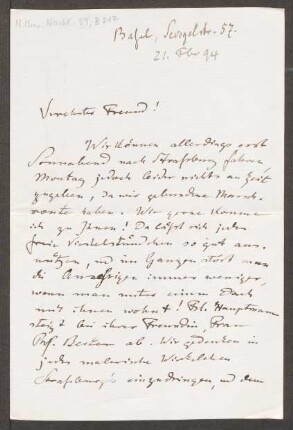 Basel, Sevogelstr. 57.
21. Febr 94
Verehrter Freund!
Wir können allerdings erst
Sonnabend nach Strassburg fahren
Montag jedoch leider nichts an Zeit
zugeben, da wir gebundene Marsch-
route haben. Wie gerne komme
ich zu Ihnen! Da lässt sich jedes
freie Viertelstündchen so gut aus-
nützen, u im Ganzen stört man
die Angehörigen immer weniger,
wenn man unter einem Dach
mit ihnen wohnt! Frl. Hauptmann
steigt bei ihrer Freundin, Frau
Prof. ab. Wir gedenken in
jedes malerische Winkelchen
Strassburg's einzudringen, u dem